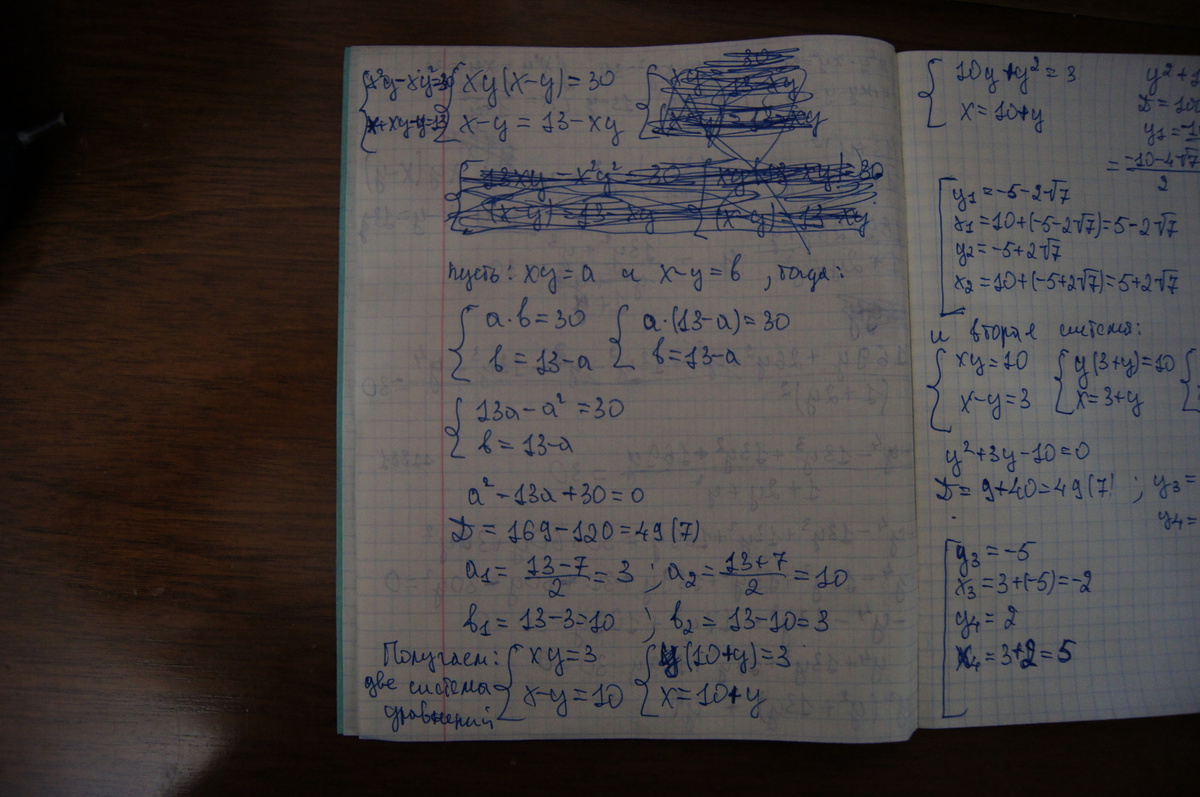 {x²y-xy²=30 {xy(x-y)=30
{x+xy-y=13 {x-y=13-xy
Пусть: xy=a и x-y=b, тогда:
{a·b=30 {a·(13-a)=30
{b=13-a {b=13-a
{13a-a²=30
{b=13-a
a²-13a+30=0
D=169-120=49(7)
a₁=(13-7)/2=3; a₂=(13+7)/2=10
b₁=13-3=10; b₂=13-10=3
Получаем: {xy=3 {y(10+y)=3
две система {x-y=10 {x=10+y
уравнений
{10y+y²=3
{x=10+y
=(-10-4√7)/2
[y₁=-5-2√7
x₁=10+(-5-2√7)=5-2√7
y₂=-5+2√7
x₂=10+(-5+2√7)=5+2√7
и вторая система:
{xy=10 {y(3+y)=10 {
{x-y=3 {x=3+y
y²+3y-10=0
D=9+40=49(7); y₃=
y₄=
[y₃=-5
x₃=3+(-5)=-2
y₄=2
x₄=3+2=5